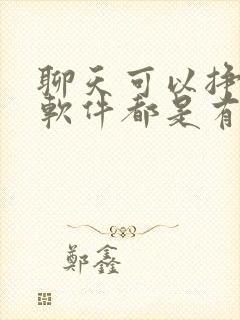 聊天可以掙
軟件都是有
鄭鑫